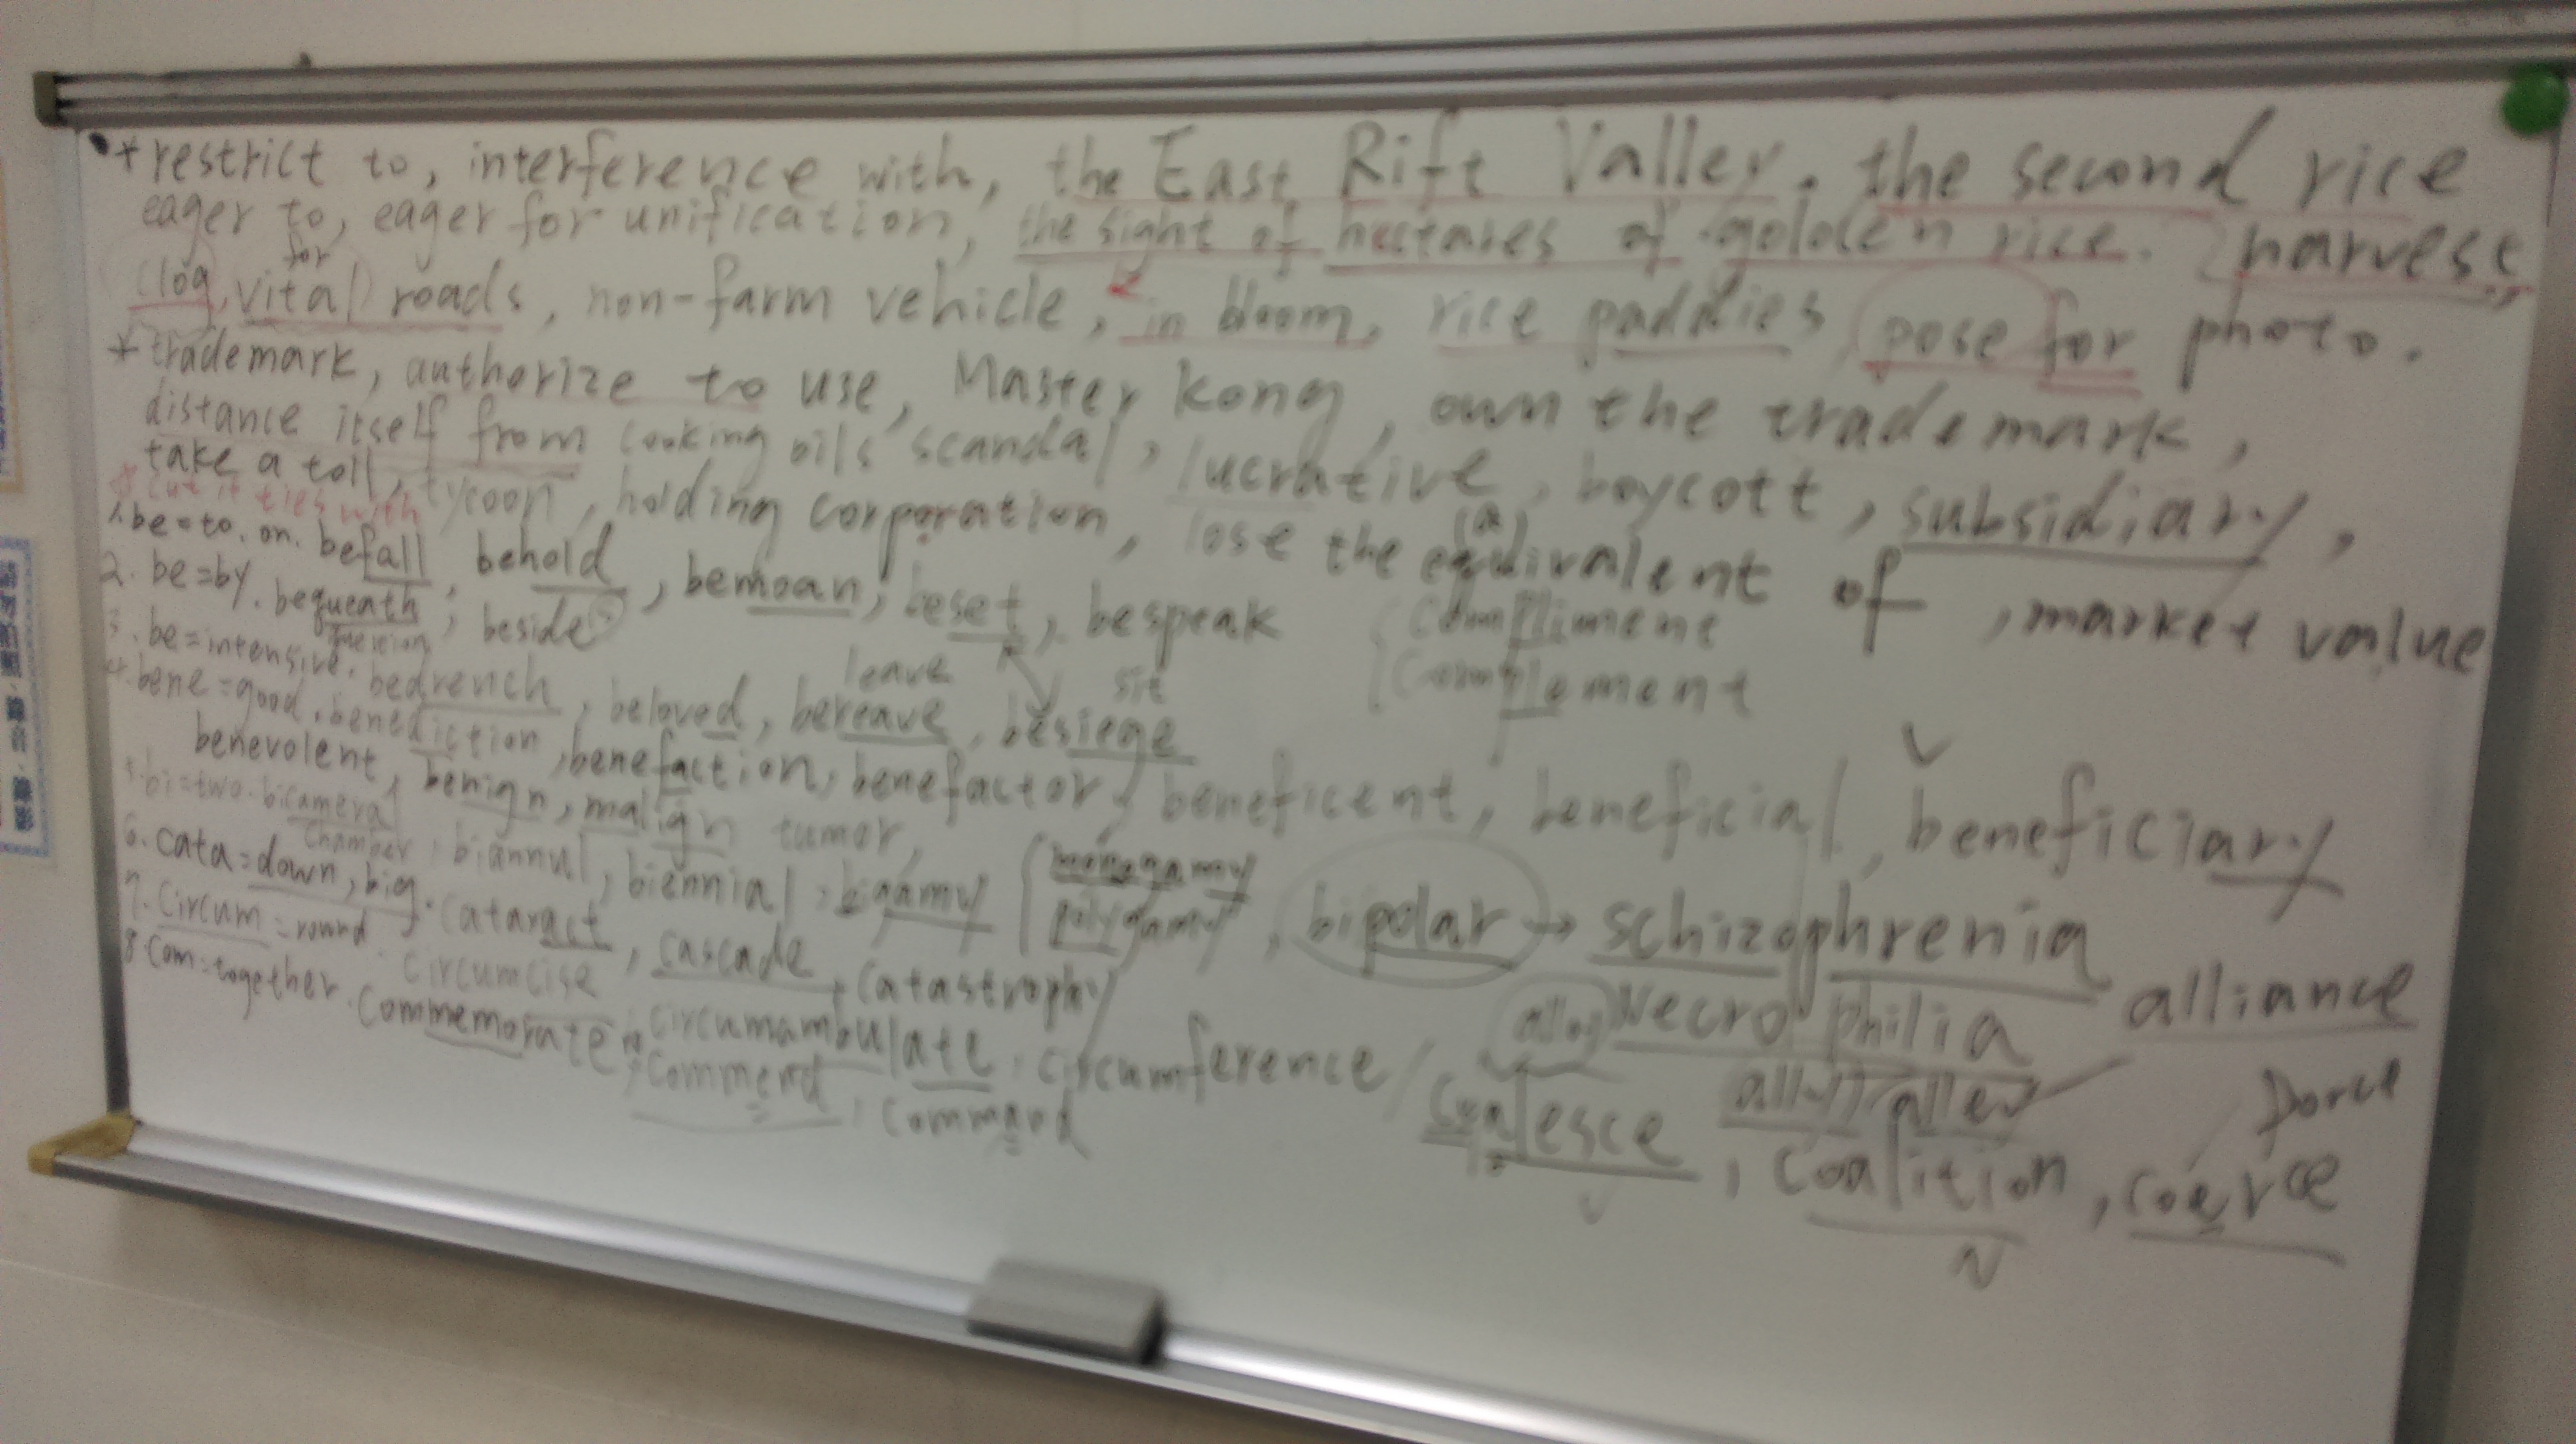 * restrict to, interference with, the East Rift Valley. the second rice
eager to, eager for unification, the sight of hectares of golden rice. harvest,
for
clog, vital roads, non-farm vehicle, in bloom, rice paddies pose for photo.
* trademark, authorize to use, Master Kong, own the trademark,
distance itself from cooking oils' scandal, lucrative, boycott, subsidiary,
take a toll, tycoon, holding corporation, lose the equivalent of, market value
(a)
cut it ties with
1. be=to. on. befall, behold, bemoan, beset, bespeak
Compliment
Complement
2. be=by. bequeath, beside(s)
3. be=intensive. bedrench, beloved, bereave, besiege
leave
sit
4. bene=good. benediction, benefaction, benefactor, beneficent, beneficial, beneficiary
benevolent, benign, malign tumor,
5. bi=two. bicameral, biannul, biennial, bigamy
chamber
monogamy
polygamy
, bipolar → schizophrenia
6. cata=down, big. cataract, cascade, catastrophy
Necrophilia
alliance
7. Circum=round. circumcise, circumambulate, circumference
alloy
ally
8. Com=together. Commemorate, Commend, Command
Coalesce, Coalition, coerce
force
V
N